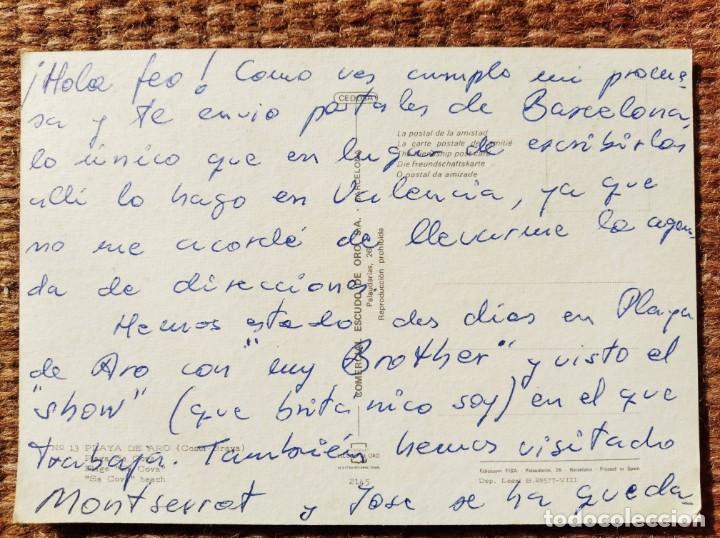 ¡Hola feo! Como ves cumplo mi prome-
sa y te envio postales de Barcelona
lo único que en lugar de escribirlos
alli lo hago en Valencia, ya que
no me acordé de llevarme la agen-
da de direcciones.
Hemos estado dos días en Playa
de Aro con "my Brother" y visto el
"show" (que britanico soy) en el que
trabaja. También hemos visitado
Montserrat y Jose se ha queda
CEDOSA
La postal de la amistad
La carte postale de l'amitié
The friendship post card
Die Freundschaftskarte
O postal da amizade
COMERCIAL ESCUDO DE ORO, S.A. - BARCELONA
Palaudarias, 26
Reproducción prohibida
Nº 13 PLAYA DE ARO (Costa Brava)
"Sa Cova" beach
2145
Dep. Legal B. 29577-VIII
todocoleccion
todocoleccion.net